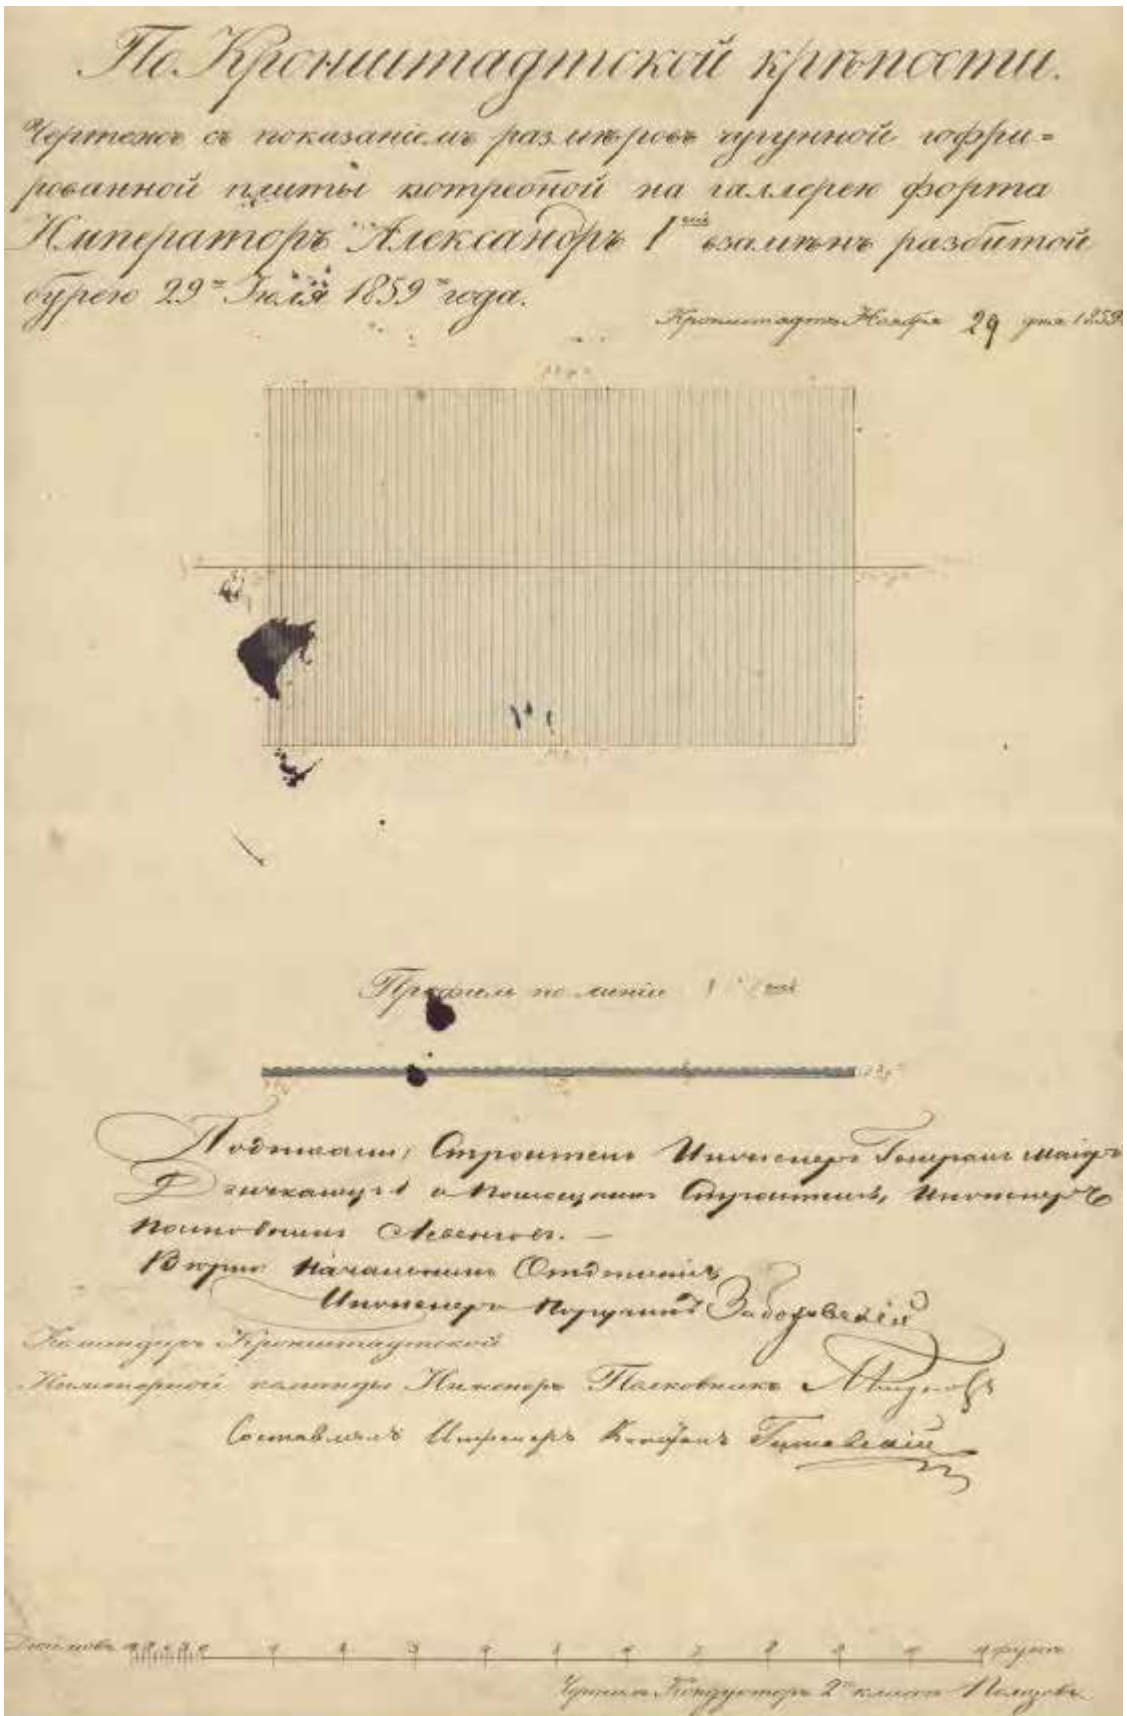 По Кронштадтской крѣпости.
Чертежъ съ показаніемъ размѣровъ чугунной гофри=
рованной плиты потребной на галлерею форта
Императоръ Александръ 1ый взамѣнъ разбитой
бурею 29го Іюля 1859го года.
Кронштадтъ Ноября 29 дня 1859
Профиль по линіи
Подписали: Строитель Инженеръ Генералъ Маіоръ
и Помощникъ Строителя, Инженеръ
Полковникъ
Вѣрно Начальникъ Отдѣленія
Инженеръ Поручикъ
Командиръ Кронштадтской
Инженерной команды Инженеръ Полковникъ
Составлялъ Инженеръ Капитанъ
Дюймовъ 1 2 3 4 5 6 7 8 9 10 11 футъ
Чертилъ Кондукторъ 2го класса